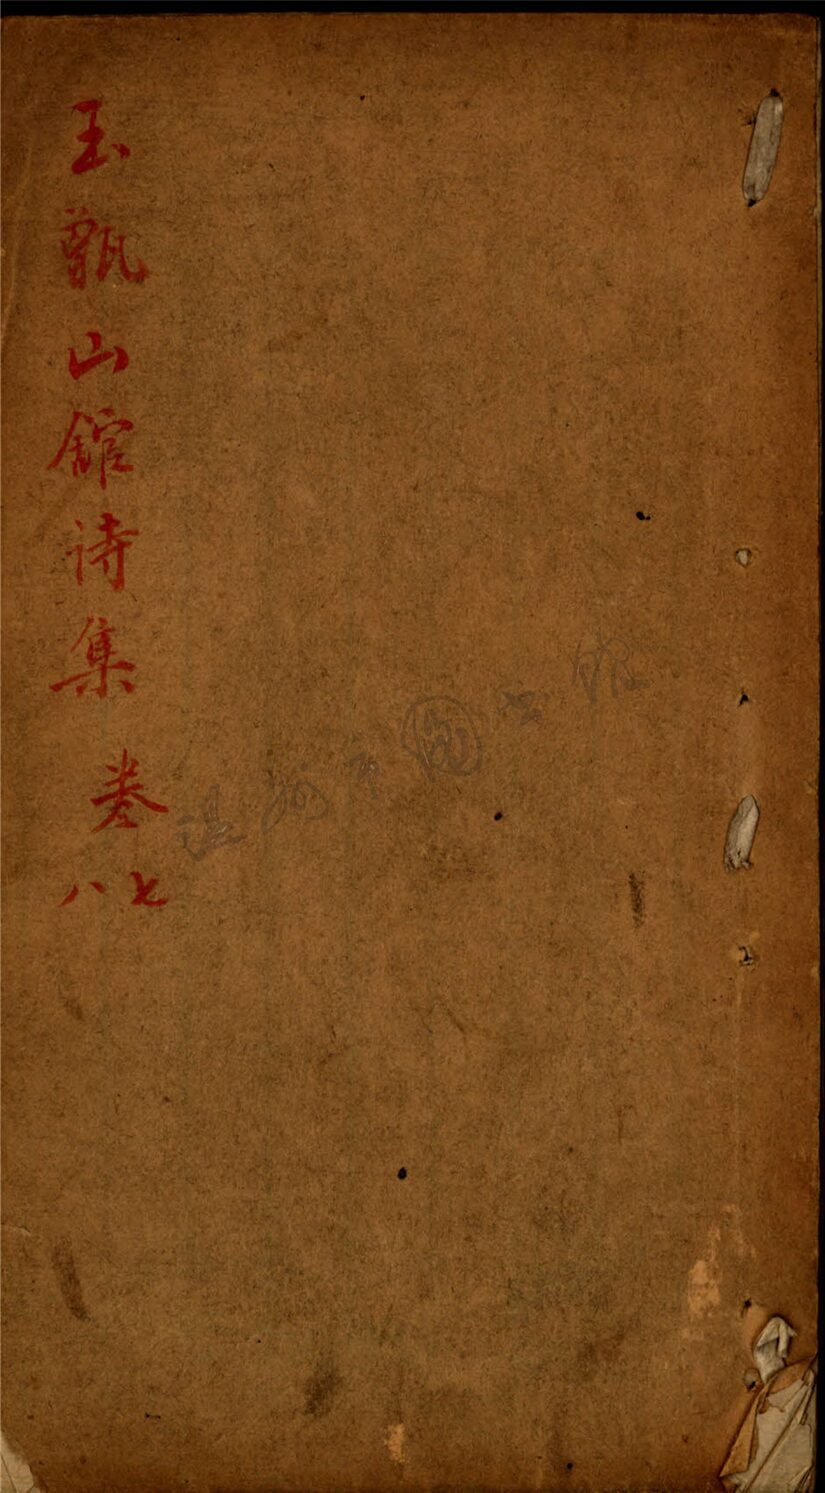 玉甑山館诗集 卷七八
温州市图书馆